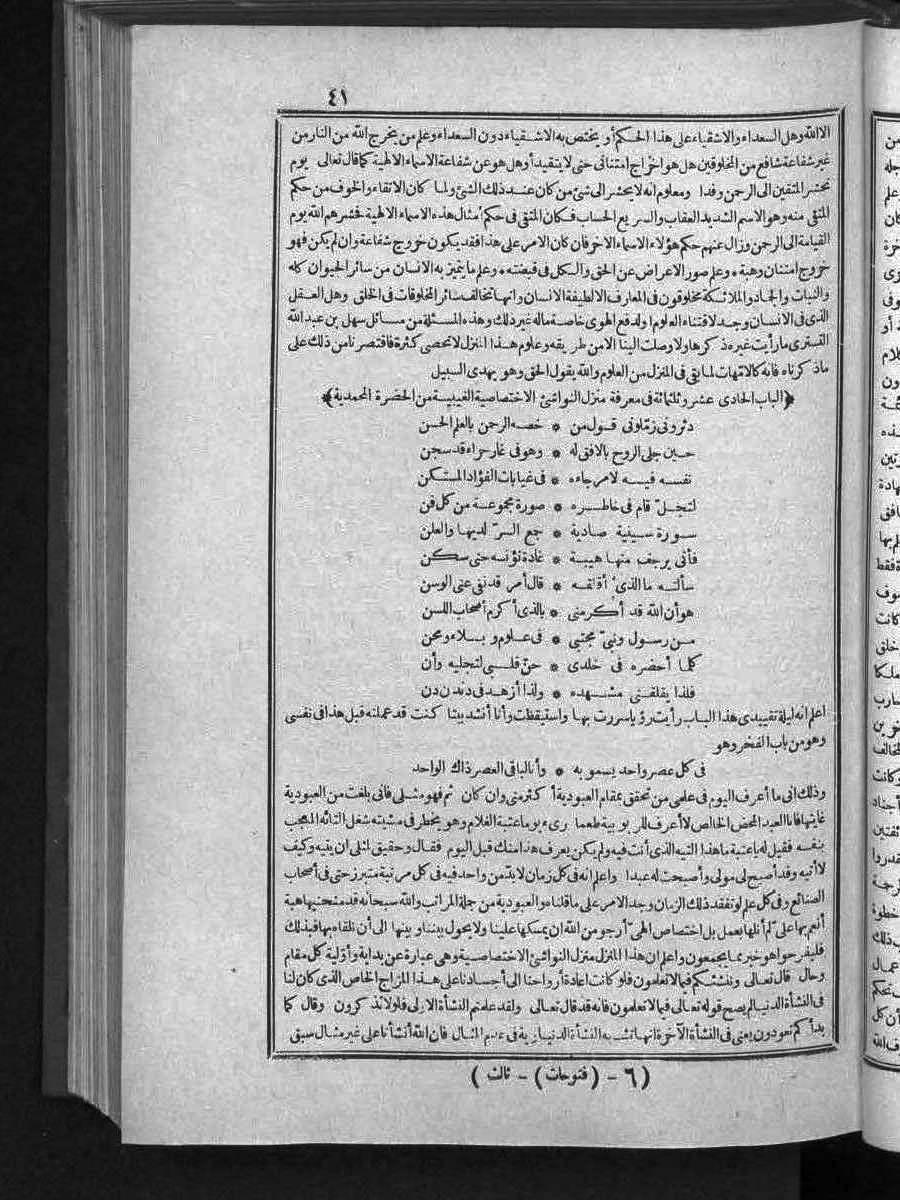 ٤١
الا الله وهل السعداء والاشقياء على هذا الحكم أو يختص به الاشقياء دون السعداء وعلم من يخرج الله من النار من
غير شفاعة شافع من المخلوقين هل هو اخراج امتنانى حتى لا يتقيد أو هل هو عن شفاعة الاسماء الالهية كما قال تعالى يوم
نحشر المتقين الى الرحمن وفدا ومعلوم انه لا يحشر الى شئ من كان عند ذلك الشئ ولما كان الاتقاء والخوف من حكم
المتقى منه وهو الاسم الشديد العقاب والسريع الحساب فكان المتقى فى حكم أمثال هذه الاسماء الالهية فحشرهم الله يوم
القيامة الى الرحمن وزال عنهم حكم هؤلاء الاسماء الاخر فان كان الامر على هذا فقد يكون خروج شفاعة وان لم يكن فهو
خروج امتنان وهبة * وعلم صور الاعراض عن الحق والكل فى قبضته * وعلم ما يتميز به الانسان من سائر الحيوان كله
والنبات والجاد والملائكة مخلوقون فى المعارف الالطيفة الانسان وانها تخالف سائر المخلوقات فى الخلق وهل العقل
الذى فى الانسان وجد لاقتناء العلوم أولدفع الهوى خاصة ماله غير ذلك وهذه المسئلة من مسائل سهل بن عبد الله
التسترى ما رأيت غيره ذكرها ولا وصلت الينا الا من طريقه وعلوم هذا المنزل لا تحصى كثرة فاقتصرنا من ذلك على
ما ذكرناه فانه كالامهات لما بقى فى المنزل من العلوم والله يقول الحق وهو يهدى السبيل
﴿الباب الحادى عشر وثلثمائة فى معرفة منزل النواشئ الاختصاصية الغيبية من الحضرة المحمدية﴾
دثرونى زمّلونى قول من * خصه الرحمن بالعلم الحسن
حين جلى الروح بالافق له * وهو فى غار حراء قد سجن
نفسه فيه لامر جاءه * فى غيابات الفؤاد المستكن
لتجلّ قام فى خاطره * صورة مجموعة من كل فن
سورة سينية صادية * جمع السرّ لديها والعلن
فأتى يرجف منها هيبة * غادة تؤنسه حتى سكن
سألته ما الذى أقلقه * قال أمر قد نفى عنى الوسن
هو أن الله قد أكرمنى * بالذى أكرم أصحاب اللسن
من رسول ونبىّ مجتبى * فى علوم وبلاء ومحن
كلما أحضره فى خلدى * حنّ قلبى لتجليه وأن
فلذا يقلقنى مشهده * ولذا أزهد فى دن دن دن
اعلم انه ليلة تقييدى هذا الباب رأيت رؤيا سررت بها واستيقظت وأنا أنشد بيتا كنت قد عملته قبل هذا فى نفسى
وهو من باب الفخر وهو
فى كل عصر واحد يسمو به * وأنا لباقى العصر ذاك الواحد
وذلك انى ما أعرف اليوم فى علمى من تحقق بمقام العبودية أكثر منى وان كان ثم فهو مثلى فانى بلغت من العبودية
غايتها فانا العبد المحض الخالص لا أعرف للربوبية طعما رىء يوما عتبة الغلام وهو يخطر فى مشيته شغل التائه المعجب
بنفسه فقيل له يا عتبة ما هذا التيه الذى أنت فيه ولم يكن يعرف هذا منك قبل اليوم فقال وحقيق لمثلى ان يتيه وكيف
لا أتيه وقد أصبح لى مولى وأصبحت له عبدا واعلم انه فى كل زمان لا بدّ من واحد فيه فى كل مرتبة متبرز حتى فى أصحاب
الصنائع وفى كل علم لو تفقد ذلك الزمان وجد الامر على ما قلناه والعبودية من جملة المراتب والله سبحانه قد منحنيها هبة
أنعم بها علىّ لم أنلها بعمل بل اختصاص الهىّ أرجو من الله ان يمسكها علينا ولا يحول بيننا وبينها الى أن نلقاه بها فبذلك
فليفرحوا هو خير مما يجمعون واعلم ان هذا المنزل منزل النواشئ الاختصاصية وهى عبارة عن بداية وأولية كل مقام
وحال قال تعالى وننشئكم فيما لا تعلمون فلو كانت اعادة أرواحنا الى أجسادنا على هذا المزاج الخاص الذى كان لنا
فى النشأة الدنيا لم يصح قوله تعالى فيما لا تعلمون فانه قد قال تعالى ولقد علمتم النشأة الاولى فلولا تذكرون وقال كما
بدأكم تعودون يعنى فى النشأة الآخرة انها تشبه النشأة الدنياوية فى عدم المثال فان الله أنشأنا على غير مثال سبق
(٦ - (فتوحات) - ثالث)